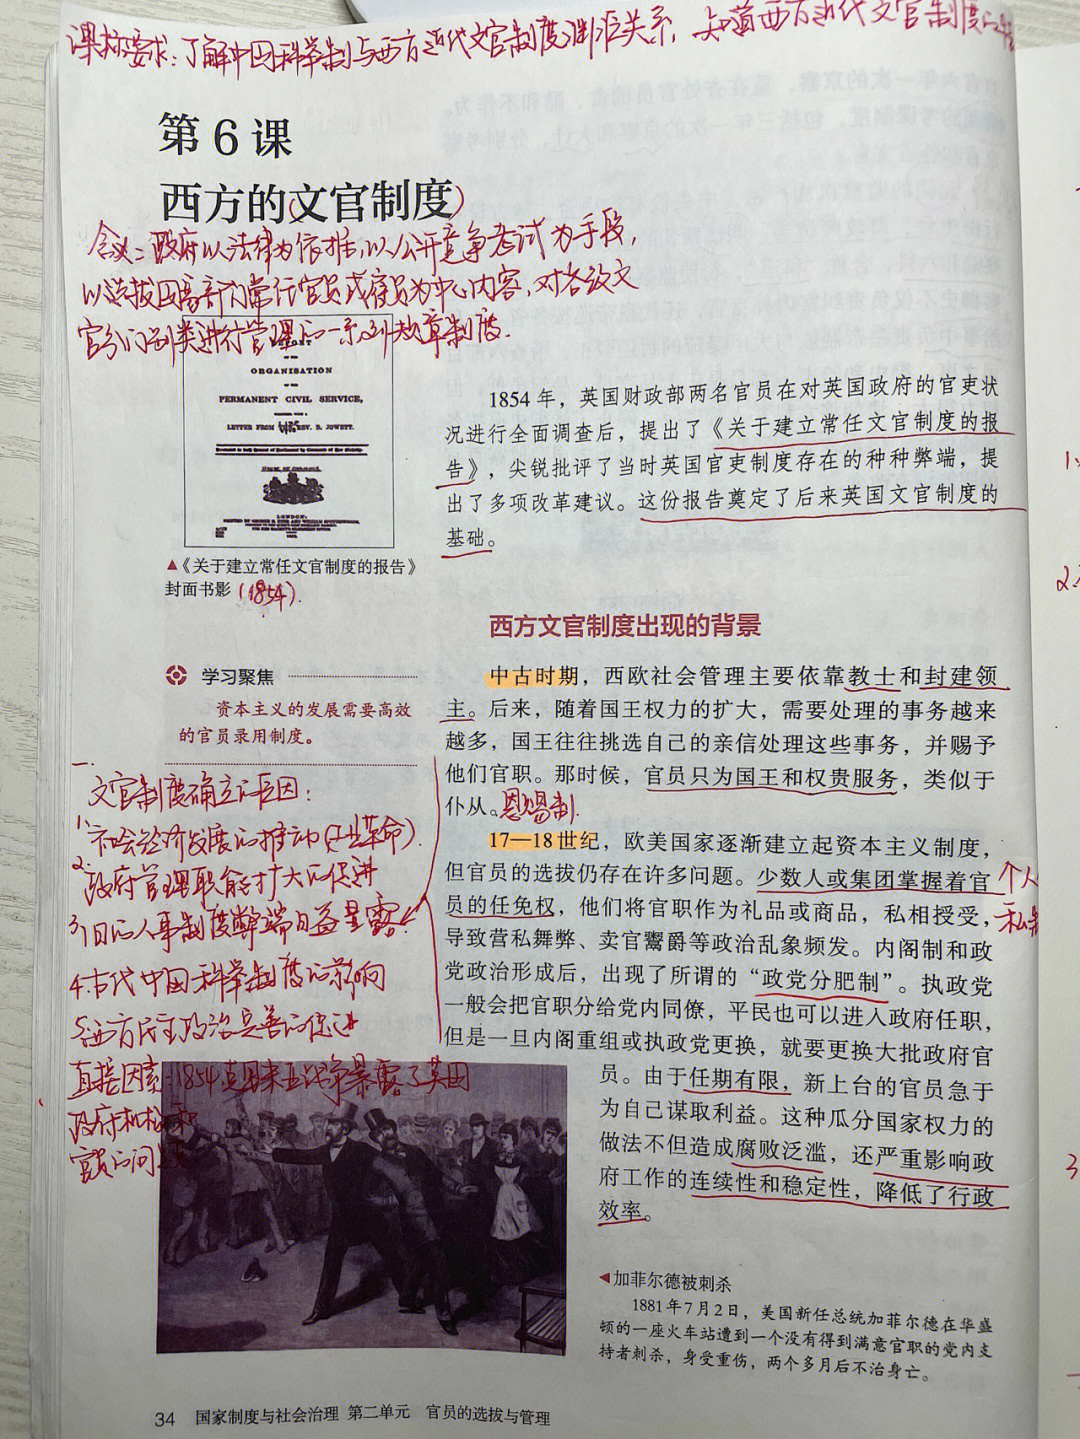 课标要求:了解中国科举制与西方近代文官制度渊源关系,知道西方近代文官制度
第6课
西方的(文官制度)
含义:政府以法律为依据,以公开竞争考试为手段,
以选拔因需而为常任官员或雇员为中心内容,对各级文
官分门别类进行管理的一系列规章制度.
ORGANISATION
OF THE
PERMANENT CIVIL SERVICE,
LETTER FROM THE REV. B. JOWETT.
LONDON:
▲《关于建立常任文官制度的报告》
封面书影(1854).
1854年,英国财政部两名官员在对英国政府的官吏状
况进行全面调查后,提出了《关于建立常任文官制度的报
告》,尖锐批评了当时英国官吏制度存在的种种弊端,提
出了多项改革建议。这份报告奠定了后来英国文官制度的
基础。
学习聚焦
资本主义的发展需要高效
的官员录用制度。
西方文官制度出现的背景
中古时期,西欧社会管理主要依靠教士和封建领
主。后来,随着国王权力的扩大,需要处理的事务越来
越多,国王往往挑选自己的亲信处理这些事务,并赐予
他们官职。那时候,官员只为国王和权贵服务,类似于
仆从。恩赐制.
17—18世纪,欧美国家逐渐建立起资本主义制度,
但官员的选拔仍存在许多问题。少数人或集团掌握着官
员的任免权,他们将官职作为礼品或商品,私相授受,
导致营私舞弊、卖官鬻爵等政治乱象频发。内阁制和政
党政治形成后,出现了所谓的“政党分肥制”。执政党
一般会把官职分给党内同僚,平民也可以进入政府任职,
但是一旦内阁重组或执政党更换,就要更换大批政府官
员。由于任期有限,新上台的官员急于
为自己谋取利益。这种瓜分国家权力的
做法不但造成腐败泛滥,还严重影响政
府工作的连续性和稳定性,降低了行政
效率。
个人
一.
文官制度确立的原因:
1.社会经济发展的推动(工业革命).
2.政府管理职能扩大的促进
3.旧的人事制度弊端日益暴露.
4.古代中国科举制度的影响
5.西方民主政治完善的促进
直接因素:1854克里米亚战争暴露了英国
政府机构和
官员的问题
◀加菲尔德被刺杀
1881年7月2日,美国新任总统加菲尔德在华盛
顿的一座火车站遭到一个没有得到满意官职的党内支
持者刺杀,身受重伤,两个多月后不治身亡。
34 国家制度与社会治理 第二单元 官员的选拔与管理